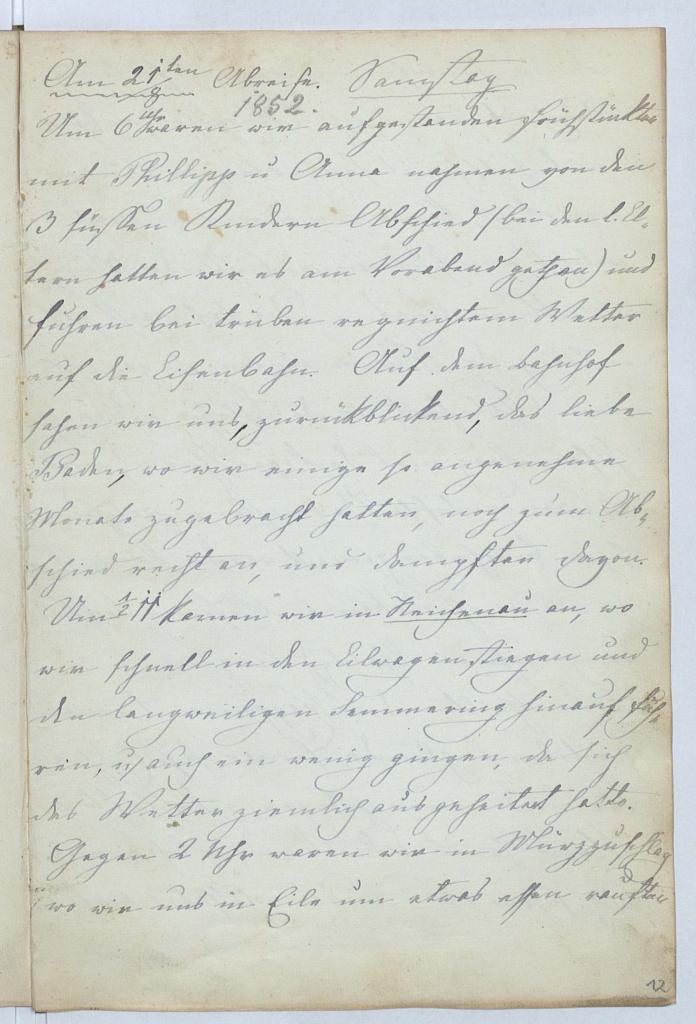 Am 21ten Abreise. Samstag
8 1852.
Um 6 Uhr waren wir aufgestanden frühstückten
mit Phillipp u Anna nahmen von den
3 süssen Kindern Abschied (bei den l. El-
tern hatten wir es am Vorabend gethan) und
fuhren bei trüben regnichtem Wetter
auf die Eisenbahn. Auf dem Bahnhof
sahen wir uns, zurückblickend, das liebe
Baden, wo wir einige so angenehme
Monate zugebracht hatten, noch zum Ab-
schied recht an, und dampften davon.
Um ½ 11 kamen wir in Reichenau an, wo
wir schnell in den Eilwagen stiegen und
den langweiligen Semmering hinauf fuh-
ren, u auch ein wenig gingen, da sich
das Wetter ziemlich ausgeheitert hatte.
Gegen 2 Uhr waren wir in Mürzzuschlag
wo wir uns in Eile um etwas essen rauften
12